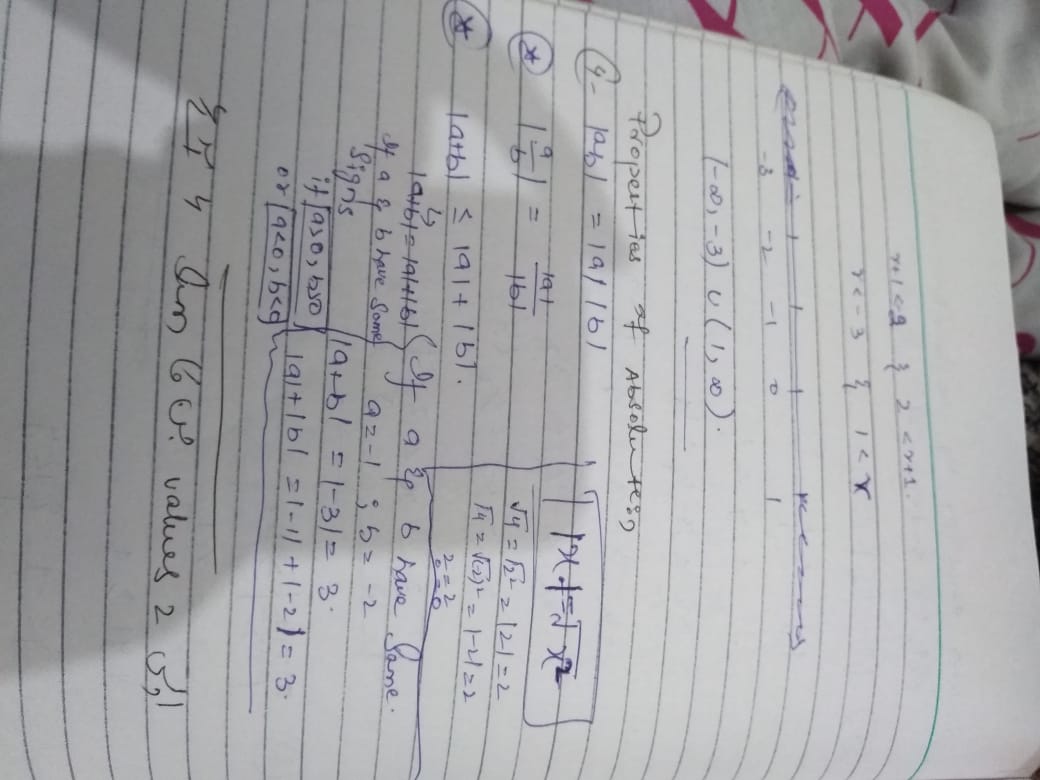 x+1<-2 } 2<x+1.
x<-3 } 1<x
-3 -2 -1 0 1
(-∞,-3) ∪ (1,∞).
Properties of Absolutes,
|ab| = |a| |b|
|x|=√x²
|a/b| = |a|/|b|
√4 = √2² = |2| = 2
√4 = √(-2)² = |-2| = 2
2=2
|a+b| ≤ |a| + |b|.
|a+b|=|a|+|b| { If a & b have Same.
If a & b have Same Signs
a=-1 ; b=-2
if a>0, b>0
|a+b| = |-3| = 3.
or a<0, b<0
|a|+|b| = |-1| + |-2| = 3.
values 2